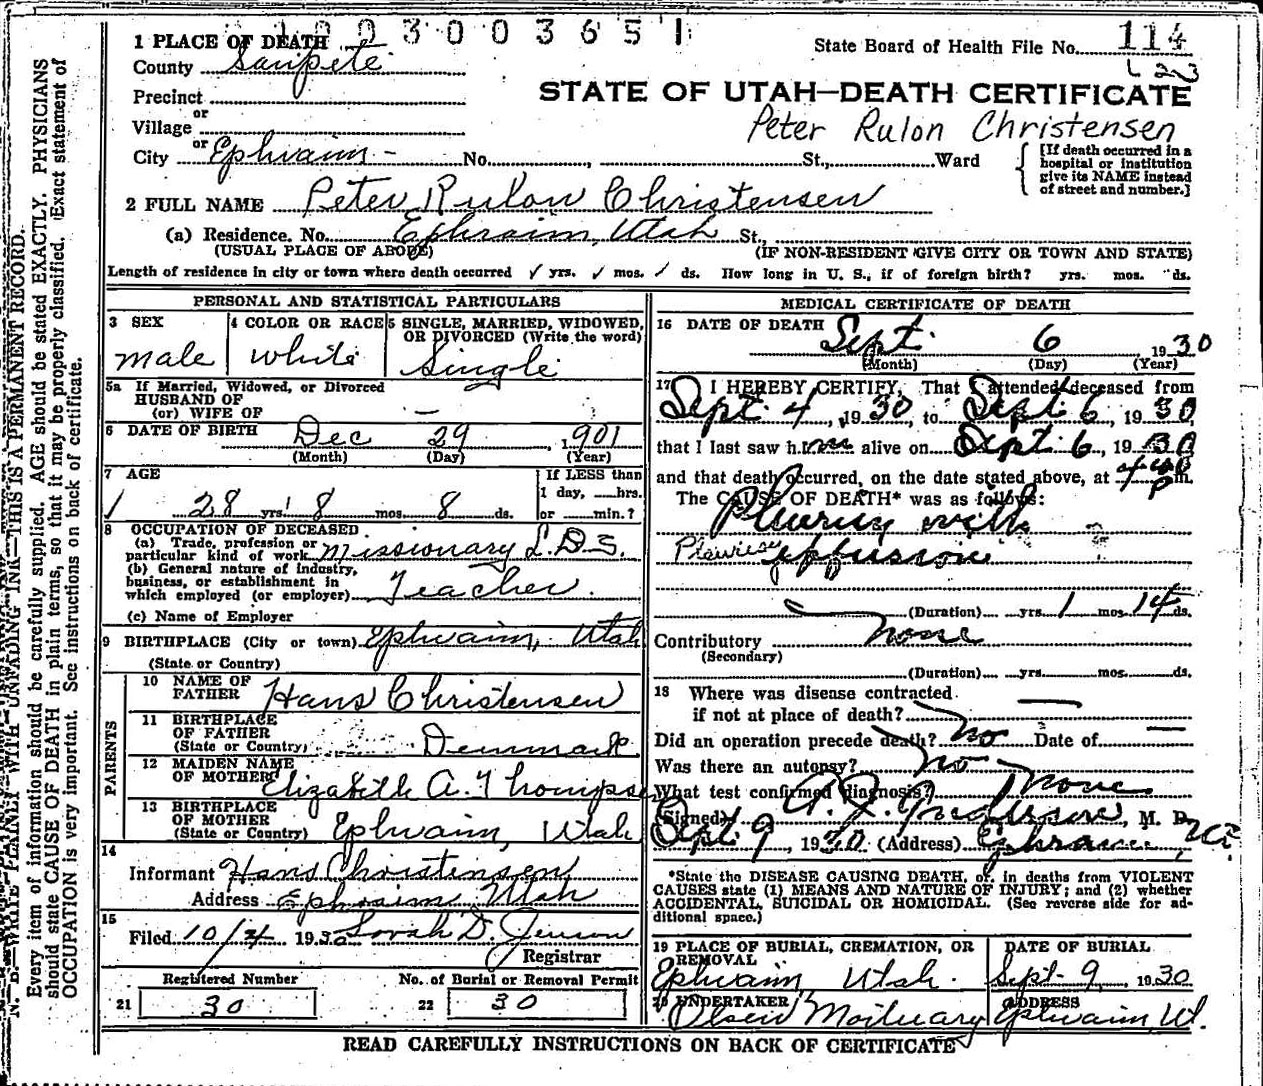 1003003651
1 PLACE OF DEATH
State Board of Health File No. 114
County Sanpete
STATE OF UTAH—DEATH CERTIFICATE
Precinct
or
Village
Peter Rulon Christensen
or
City Ephraim - No. , St., Ward
[If death occurred in a hospital or institution give its NAME instead of street and number.]
2 FULL NAME Peter Rulon Christensen
(a) Residence. No. Ephraim, Utah St.
(USUAL PLACE OF ABODE) (IF NON-RESIDENT GIVE CITY OR TOWN AND STATE)
Length of residence in city or town where death occurred yrs. mos. ds. How long in U. S., if of foreign birth? yrs. mos. ds.
PERSONAL AND STATISTICAL PARTICULARS
3 SEX 4 COLOR OR RACE 5 SINGLE, MARRIED, WIDOWED, OR DIVORCED (Write the word)
male white Single
5a If Married, Widowed, or Divorced
HUSBAND OF
(or) WIFE OF —
6 DATE OF BIRTH Dec 29, 1901
(Month) (Day) (Year)
7 AGE
If LESS than
1 day, hrs.
28 yrs. 8 mos. 8 ds. or min.?
8 OCCUPATION OF DECEASED
(a) Trade, profession or
particular kind of work Missionary L.D.S.
(b) General nature of industry,
business, or establishment in
which employed (or employer) Teacher.
(c) Name of Employer
9 BIRTHPLACE (City or town) Ephraim, Utah
(State or Country)
PARENTS
10 NAME OF FATHER Hans Christensen
11 BIRTHPLACE OF FATHER
(State or Country) Denmark
12 MAIDEN NAME OF MOTHER Elizabeth A. Thompson
13 BIRTHPLACE OF MOTHER
(State or Country) Ephraim, Utah
14
Informant Hans Christensen
Address Ephraim, Utah
15
Filed 10/4 1930 Sorah D. Jenson
Registrar
Registered Number No. of Burial or Removal Permit
21 30 22 30
MEDICAL CERTIFICATE OF DEATH
16 DATE OF DEATH Sept. 6 1930
(Month) (Day) (Year)
17 I HEREBY CERTIFY, That I attended deceased from
Sept. 4, 1930, to Sept. 6, 1930,
that I last saw him alive on Sept. 6, 1930
and that death occurred, on the date stated above, at P m.
The CAUSE OF DEATH* was as follows:
Plurisy with
Pleuriesy effusion
(Duration) yrs. 1 mos. 14 ds.
Contributory none
(Secondary)
(Duration) yrs. mos. ds.
18 Where was disease contracted
if not at place of death? —
Did an operation precede death? no Date of —
Was there an autopsy? no
What test confirmed diagnosis? none
(Signed) , M. D.
Sept 9, 1930 (Address) Ephraim, Ut.
*State the DISEASE CAUSING DEATH, or, in deaths from VIOLENT
CAUSES state (1) MEANS AND NATURE OF INJURY; and (2) whether
ACCIDENTAL, SUICIDAL OR HOMICIDAL. (See reverse side for ad-
ditional space.)
19 PLACE OF BURIAL, CREMATION, OR REMOVAL DATE OF BURIAL
Ephraim Utah. Sept 9, 1930
20 UNDERTAKER ADDRESS
Olsen Mortuary Ephraim, Ut.
READ CAREFULLY INSTRUCTIONS ON BACK OF CERTIFICATE
N. B.—WRITE PLAINLY WITH UNFADING INK—THIS IS A PERMANENT RECORD.
Every item of information should be carefully supplied. AGE should be stated EXACTLY. PHYSICIANS
should state CAUSE OF DEATH in plain terms, so that it may be properly classified. Exact statement of
OCCUPATION is very important. See instructions on back of certificate.